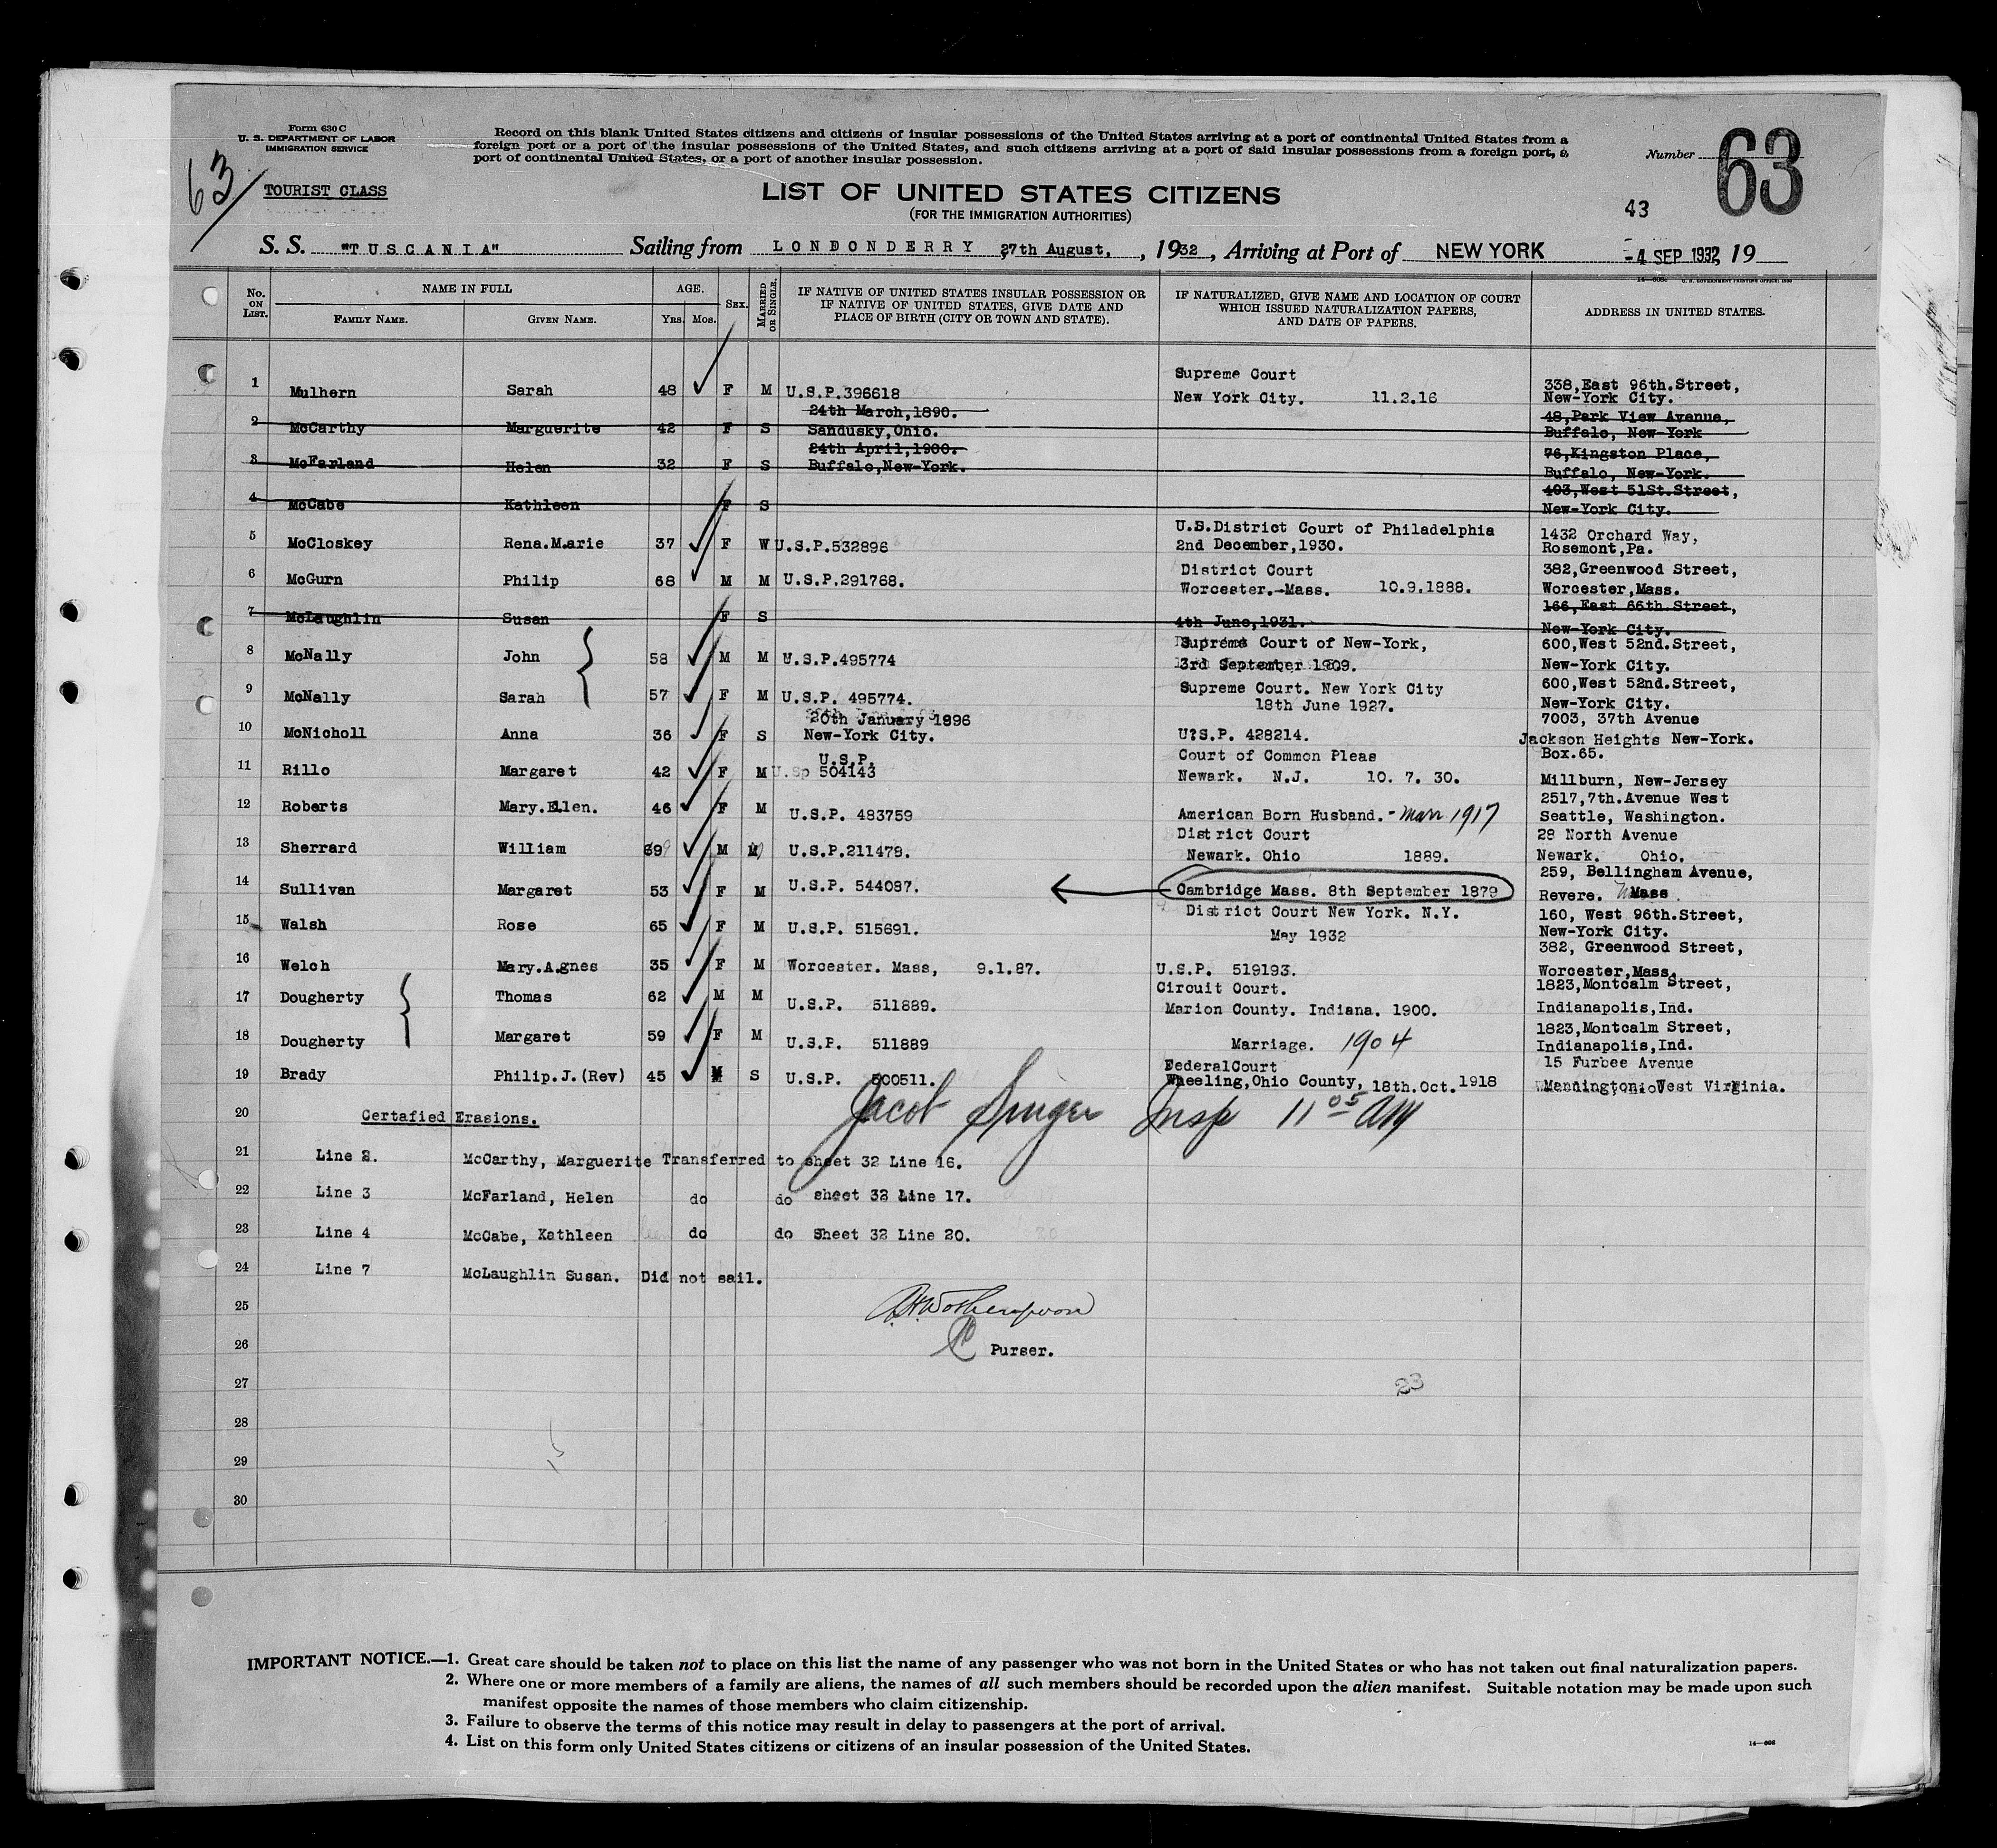 Form 630 C
U. S. DEPARTMENT OF LABOR
IMMIGRATION SERVICE
63
TOURIST CLASS
Record on this blank United States citizens and citizens of insular possessions of the United States arriving at a port of continental United States from a
foreign port or a port of the insular possessions of the United States, and such citizens arriving at a port of said insular possessions from a foreign port, a
port of continental United States, or a port of another insular possession.
Number 63
LIST OF UNITED STATES CITIZENS
(FOR THE IMMIGRATION AUTHORITIES)
43
S. S. "TUSCANIA" Sailing from LONDONDERRY 27th August, , 1932 , Arriving at Port of NEW YORK -4 SEP 1932, 19
No. ON LIST. NAME IN FULL AGE. SEX. MARRIED OR SINGLE. IF NATIVE OF UNITED STATES INSULAR POSSESSION OR IF NATIVE OF UNITED STATES, GIVE DATE AND PLACE OF BIRTH (CITY OR TOWN AND STATE). IF NATURALIZED, GIVE NAME AND LOCATION OF COURT WHICH ISSUED NATURALIZATION PAPERS, AND DATE OF PAPERS. ADDRESS IN UNITED STATES.
FAMILY NAME. GIVEN NAME. Yrs. Mos.
Supreme Court
1 Mulhern Sarah 48 F M U.S.P.396618 New York City. 11.2.16 338,East 96th.Street,
New-York City.
24th March,1890. 48,Park View Avenue,
2 McCarthy Marguerite 42 F S Sandusky,Ohio. Buffalo, New-York
24th April,1900. 76,Kingston Place,
3 McFarland Helen 32 F S Buffalo,New-York. Buffalo, New-York.
403,West 51St.Street,
4 McCabe Kathleen F S New-York City.
U.S.District Court of Philadelphia 1432 Orchard Way,
5 McCloskey Rena.Marie 37 F W U.S.P.532896 2nd December,1930. Rosemont,Pa.
District Court 382,Greenwood Street,
6 McGurn Philip 68 M M U.S.P.291768. Worcester.-Mass. 10.9.1888. Worcester,Mass.
166,East 66th.Street,
7 McLaughlin Susan F S 4th June,1931. New-York City.
Supreme Court of New-York, 600,West 52nd.Street,
8 McNally John 58 M M U.S.P.495774 3rd September 1909. New-York City.
Supreme Court. New York City 600,West 52nd.Street,
9 McNally Sarah 57 F M U.S.P. 495774. 18th June 1927. New-York City.
20th January 1896 7003, 37th Avenue
10 McNicholl Anna 36 F S New-York City. U?S.P. 428214. Jackson Heights New-York.
U.S.P. Court of Common Pleas Box.65.
11 Rillo Margaret 42 F M 504143 Newark. N.J. 10. 7. 30. Millburn, New-Jersey
2517,7th.Avenue West
12 Roberts Mary.Ellen. 46 F M U.S.P. 483759 American Born Husband. - Marr 1917 Seattle, Washington.
District Court 28 North Avenue
13 Sherrard William 69 M U.S.P.211478. Newark. Ohio 1889. Newark. Ohio.
259, Bellingham Avenue,
14 Sullivan Margaret 53 F M U.S.P. 544087. Cambridge Mass. 8th September 1879 Revere. Mass.
District Court New York. N.Y. 160, West 96th.Street,
15 Walsh Rose 65 F M U.S.P. 515691. May 1932 New-York City.
382, Greenwood Street,
16 Welch Mary.Agnes 35 F M Worcester. Mass, 9.1.87. U.S.P. 519193. Worcester,Mass.
Circuit Court. 1823,Montcalm Street,
17 Dougherty Thomas 62 M M U.S.P. 511889. Marion County. Indiana. 1900. Indianapolis,Ind.
1823,Montcalm Street,
18 Dougherty Margaret 59 F M U.S.P. 511889 Marriage. 1904 Indianapolis,Ind.
FederalCourt 15 Furbee Avenue
19 Brady Philip.J.(Rev) 45 M S U.S.P. 500511. Wheeling,Ohio County, 18th.Oct. 1918 Mannington. West Virginia.
20 Certafied Erasions. Jacob Singer Insp 11 05 AM
21 Line 2. McCarthy, Marguerite Transferred to sheet 32 Line 16.
22 Line 3 McFarland, Helen do do sheet 32 Line 17.
23 Line 4 McCabe, Kathleen do do Sheet 32 Line 20.
24 Line 7 McLaughlin Susan. Did not sail.
25
26 Purser.
27 23
28
29
30
IMPORTANT NOTICE.—1. Great care should be taken not to place on this list the name of any passenger who was not born in the United States or who has not taken out final naturalization papers.
2. Where one or more members of a family are aliens, the names of all such members should be recorded upon the alien manifest. Suitable notation may be made upon such
manifest opposite the names of those members who claim citizenship.
3. Failure to observe the terms of this notice may result in delay to passengers at the port of arrival.
4. List on this form only United States citizens or citizens of an insular possession of the United States.